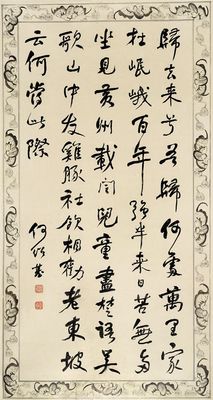 歸去来兮吾歸何處萬里家
在岷峨百年強半来日苦無多
坐見黄州載閏兒童盡楚語吳
歌山中友雞豚社飲相勸老東坡
云何當此際
何紹基